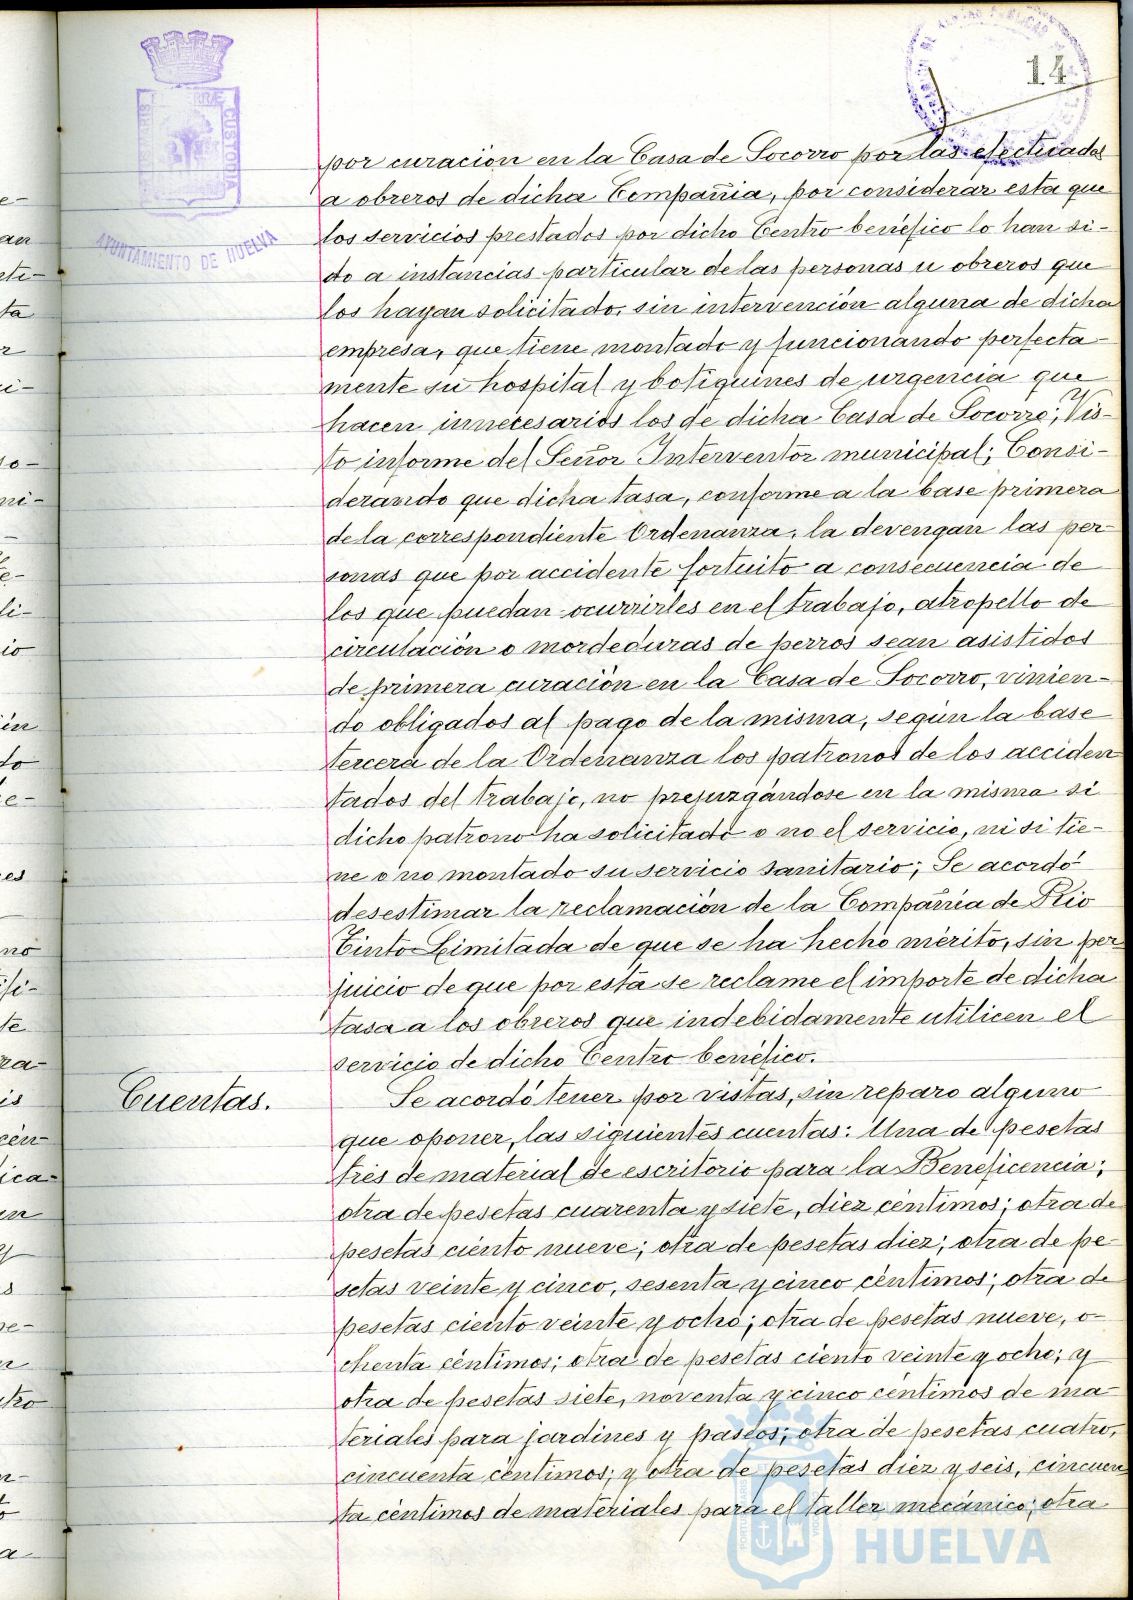 14
AYUNTAMIENTO DE HUELVA
por curación en la Casa de Socorro por las efectuadas
a obreros de dicha Compañia, por considerar esta que
los servicios prestados por dicho Centro benéfico lo han si-
do a instancias particular de las personas u obreros que
los hayan solicitado, sin intervención alguna de dicha
empresa, que tiene montado y funcionando perfecta-
mente su hospital y botiquines de urgencia que
hacen innecesarios los de dicha Casa de Socorro; Vis-
to informe del Señor Interventor municipal; Consi-
derando que dicha tasa, conforme a la base primera
de la correspondiente Ordenanza, la devengan las per-
sonas que por accidente fortuito a consecuencia de
los que puedan ocurrirles en el trabajo, atropello de
circulación o mordeduras de perros sean asistidos
de primera curación en la Casa de Socorro, vinien-
do obligados al pago de la misma, según la base
tercera de la Ordenanza los patronos de los acciden-
tados del trabajo, no prejuzgándose en la misma si
dicho patrono ha solicitado o no el servicio, ni si tie-
ne o no montado su servicio sanitario; Se acordó
desestimar la reclamación de la Compañía de Rio
Tinto Limitada de que se ha hecho mérito, sin per-
juicio de que por esta se reclame el importe de dicha
tasa a los obreros que indebidamente utilicen el
servicio de dicho Centro benéfico.
Cuentas.
Se acordó tener por vistas, sin reparo alguno
que oponer, las siguientes cuentas: Una de pesetas
tres de material de escritorio para la Beneficencia;
otra de pesetas cuarenta y siete, diez céntimos; otra de
pesetas ciento nueve; otra de pesetas diez; otra de pe-
setas veinte y cinco, sesenta y cinco céntimos; otra de
pesetas ciento veinte y ocho; otra de pesetas nueve, o-
chenta céntimos; otra de pesetas ciento veinte y ocho; y
otra de pesetas siete, noventa y cinco céntimos de ma-
teriales para jardines y paseos; otra de pesetas cuatro,
cincuenta céntimos; y otra de pesetas diez y seis, cincuen-
ta céntimos de materiales para el taller mecánico; otra
HUELVA